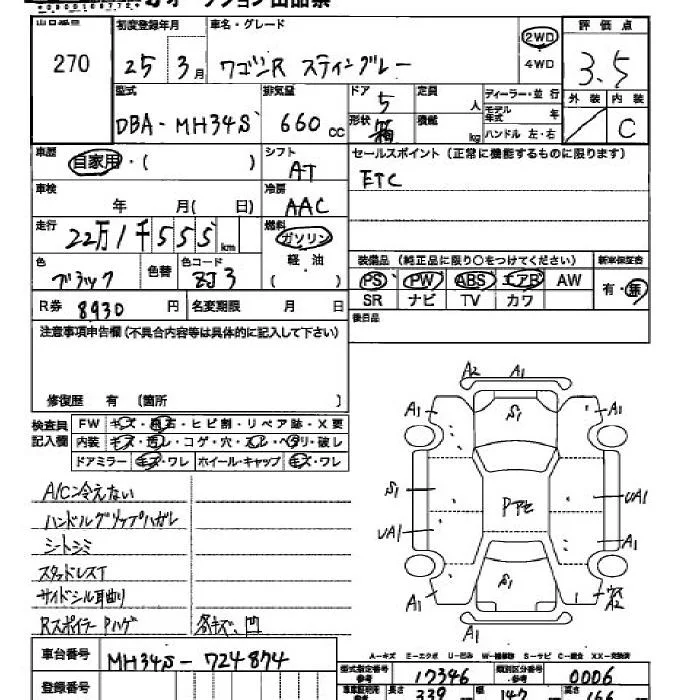 オークション出品票
出品番号 初度登録年月 車名・グレード 評価点
270 25 3月 ワゴンR スティングレー 2WD 4WD 3.5
型式 排気量 ドア 定員 ディーラー・並行 外装 内装
DBA-MH34S 660cc 5 人 モデル年式 年 C
形状 箱 積載 kg ハンドル 左・右
車歴 自家用・( ) シフト AT セールスポイント(正常に機能するものに限ります)
ETC
車検 年 月( 日) 冷房 AAC
走行 22万1千555km 燃料 ガソリン
軽・油
( )
色 ブラック 色替 色コード ZJ3
装備品(純正品に限り○をつけてください) 新車保証書
PS PW ABS エアB AW 有・無
SR ナビ TV カワ
R券 8930円 名変期限 月 日 後日品
注意事項申告欄(不具合内容等は具体的に記入して下さい)
修復歴 有 〔箇所 〕
検査員記入欄 FW キズ・飛石・ヒビ割・リペア跡・X要
内装 キズ・汚レ・コゲ・穴・スレ・ヘタリ・破レ
ドアミラー キズ・ワレ ホイール・キャップ キズ・ワレ
A/C冷えない
ハンドルグリップハガレ
シートシミ
スタッドレスT
サイドシル耳曲り
Rスポイラー Pハゲ 各キズ、凹
A2 A1
A1 S1 A1
S1 Pアセ UA1
UA1 A1
S1
A1 A2
A1
A-キズ E-エクボ U-凹ミ W-補修跡 S-サビ C-腐食 XX-交換済
車台番号 MH34S-724874
型式指定番号 参考 17346 類別区分番号 参考 0006
登録番号 車車証明用 参考 長さ 339 cm 幅 147 cm 高さ 166 cm